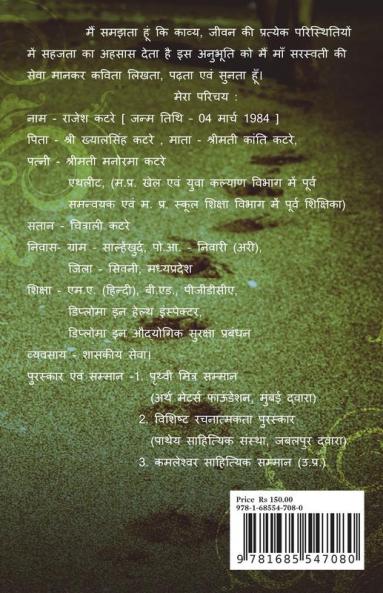 मैं समझता हूं कि काव्य, जीवन की प्रत्येक परिस्थितियों
में सहजता का अहसास देता है इस अनुभूति को मैं माँ सरस्वती की
सेवा मानकर कविता लिखता, पढ़ता एवं सुनता हूँ।
मेरा परिचय :
नाम - राजेश कटरे [ जन्म तिथि - 04 मार्च 1984 ]
पिता - श्री ख्यालसिंह कटरे , माता - श्रीमती कांति कटरे,
पत्नी - श्रीमती मनोरमा कटरे
एथलीट, (म.प्र. खेल एवं युवा कल्याण विभाग में पूर्व
समन्वयक एवं म. प्र. स्कूल शिक्षा विभाग में पूर्व शिक्षिका)
संतान - चित्राली कटरे
निवास- ग्राम - सान्हेंखुर्द, पो.आ. - निवारी (अरी),
जिला - सिवनी, मध्यप्रदेश
शिक्षा - एम.ए. (हिन्दी), बी.एड., पीजीडीसीए,
डिप्लोमा इन हेल्थ इंस्पेक्टर,
डिप्लोमा इन औद्योगिक सुरक्षा प्रबंधन
व्यवसाय - शासकीय सेवा।
पुरस्कार एवं सम्मान -1. पृथ्वी मित्र सम्मान
(अर्थ मेटर्स फाउंडेशन, मुंबई द्वारा)
2. विशिष्ट रचनात्मकता पुरस्कार
(पाथेय साहित्यिक संस्था, जबलपुर द्वारा)
3. कमलेश्वर साहित्यिक सम्मान (उ.प्र.)
Price Rs 150.00
978-1-68554-708-0
9 781685 547080